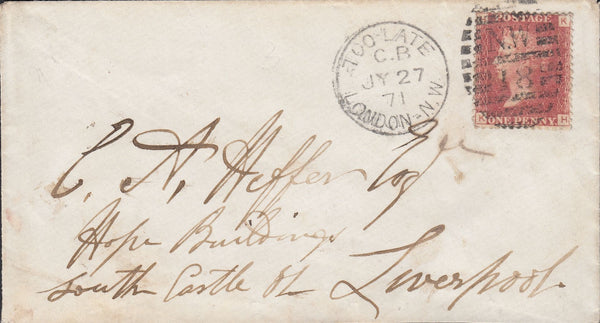 TOO-LATE
C.B
JY 27
71
LONDON-N.W
POSTAGE
K
N.W
18
ONE PENNY
K
C. A. Heffer Esqre
Hope Buildings
South Castle St
Liverpool.